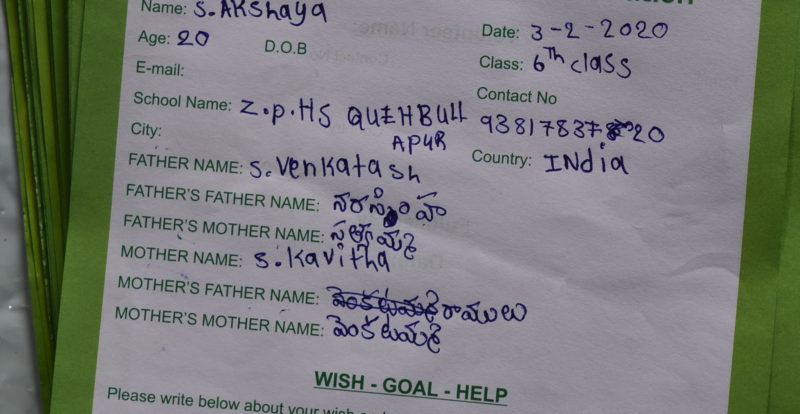 Name: S.AKshaya
Date: 3-2-2020
Age: 20 D.O.B
Class: 6th class
E-mail:
Contact No
School Name: Z.P.HS QUEHBULL
APUR
City:
Country: INdia
FATHER NAME: S.Venkatash
FATHER'S FATHER NAME: నరసింహ
FATHER'S MOTHER NAME: సత్తమ్మ
MOTHER NAME: S.Kavitha
MOTHER'S FATHER NAME: రాములు
MOTHER'S MOTHER NAME: వెంకటమ్మ
WISH - GOAL - HELP
Please write below about your wish